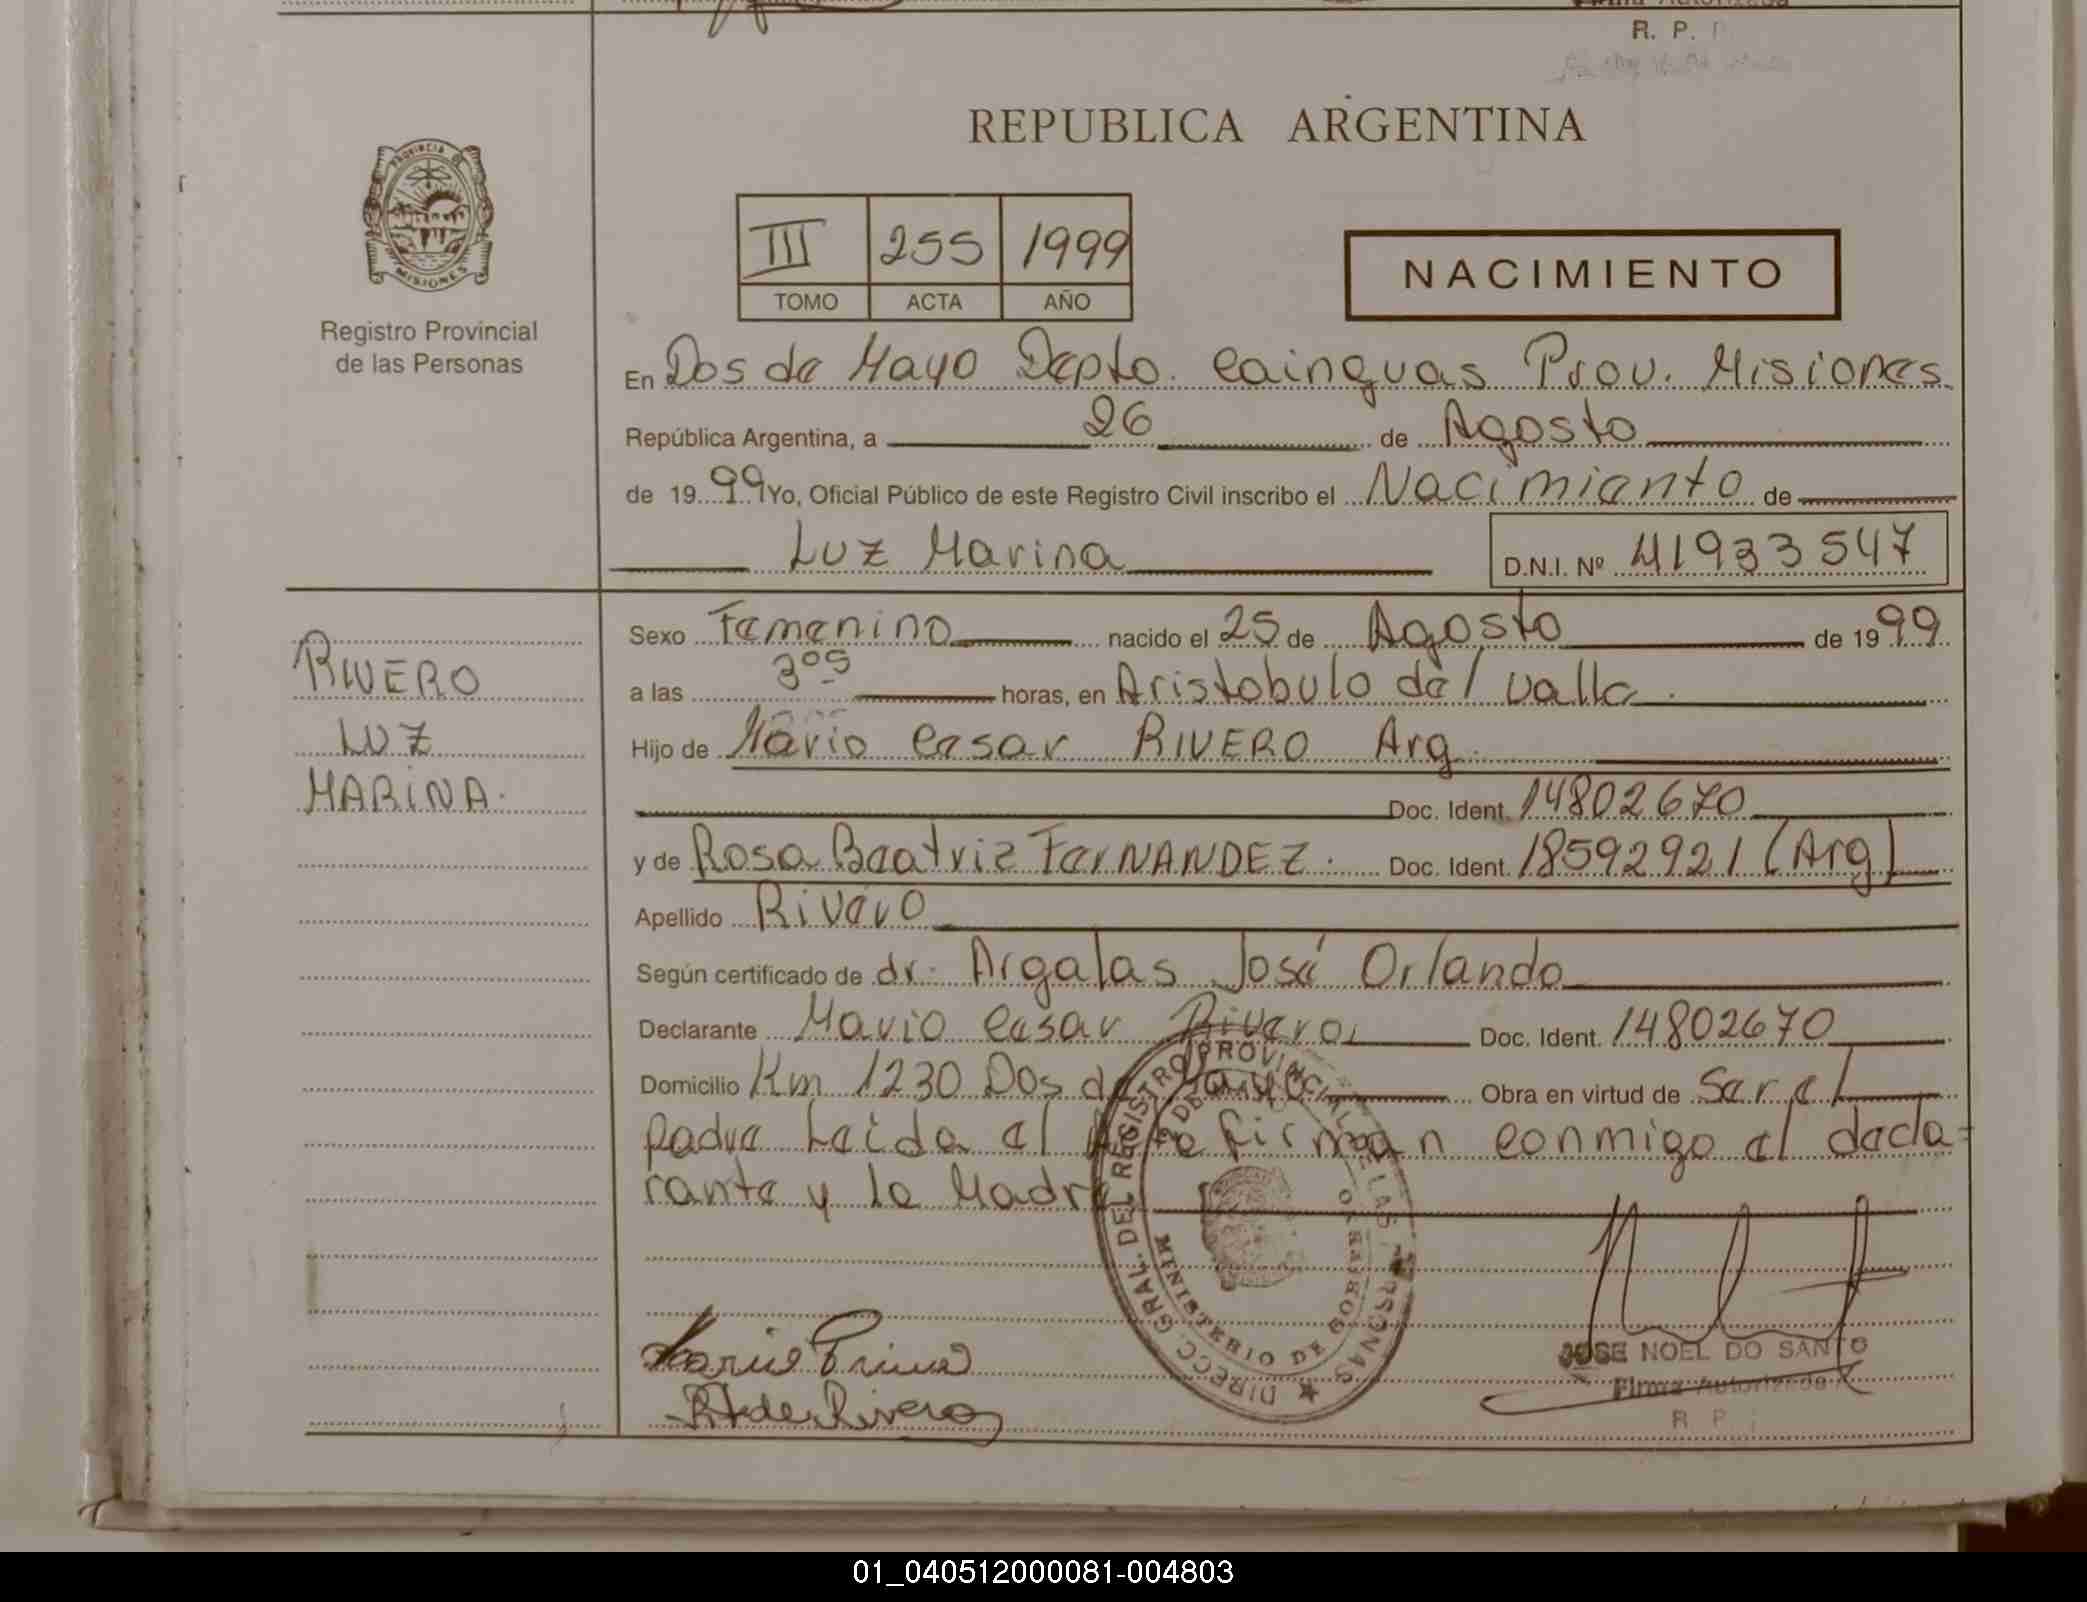 Firma Autorizada
R. P.
REPUBLICA ARGENTINA
PROVINCIA DE
MISIONES
Registro Provincial
de las Personas
III 255 1999
TOMO ACTA AÑO
NACIMIENTO
En Dos de Mayo Depto. Cainguas Prov. Misiones
República Argentina, a 26 de Agosto
de 19 99 Yo, Oficial Público de este Registro Civil inscribo el Nacimiento de
Luz Marina D.N.I. Nº 41933547
RIVERO
LUZ
MARINA.
Sexo Femenino nacido el 25 de Agosto de 19 99
a las 3:05 horas, en Aristobulo del Valle.
Hijo de Mario Cesar RIVERO Arg.
Doc. Ident. 14802670
y de Rosa Beatriz FerNANDEZ. Doc. Ident. 18592921 (Arg)
Apellido Rivero
Según certificado de dr. Argalas José Orlando
Declarante Mario Cesar Rivero, Doc. Ident. 14802670
Domicilio Km 1230 Dos de Mayo Obra en virtud de Ser el
padre Leida el Acta firman conmigo el decla-
rante y la Madre
DIRECC. GRAL. DEL REGISTRO PROVINCIAL DE LAS PERSONAS
MINISTERIO DE GOBIERNO
JOSE NOEL DO SANTO
Firma Autorizada
R. P.
01_040512000081-004803